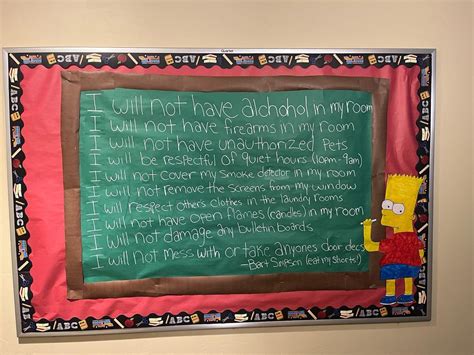 Quartet
I will not have alchohol in my room
I will not have firearms in my room
I will not have unauthorized Pets
I will be respectful of quiet hours (10pm-9am)
I will not cover my smoke detector in my room
I will not remove the screens from my window
I will respect others clothes in the laundry rooms
I will not have open flames (candles) in my room
I will not damage any bulletin boards
I will not mess with or take anyones door decs
-Bart Simpson (eat my shorts!)